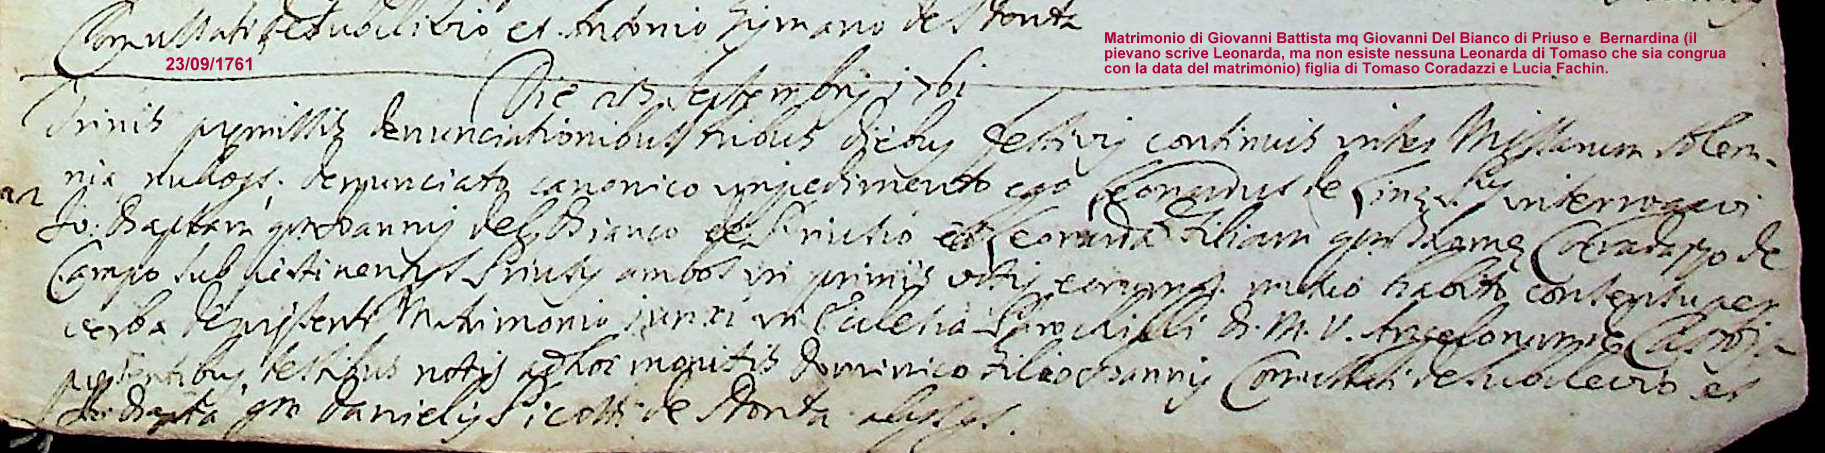 Comussati de Subilibio et Antonio Zijmano de Stonta
23/09/1761
Matrimonio di Giovanni Battista mq Giovanni Del Bianco di Priuso e Bernardina (il
pievano scrive Leonarda, ma non esiste nessuna Leonarda di Tomaso che sia congrua
con la data del matrimonio) figlia di Tomaso Coradazzi e Lucia Fachin.
Die 23 Septembris 1761
Trinis premissis denunciationibus tribus diebus festivis continuis inter Missarum solem-
nia, nulloqs. denunciato canonico impedimento ego Leonardus de interrogavi
Jo: Baptam qm Joannis del Bianco de Priusio et Leonarda filiam qm Coradazzo de
Campo sub pertinentys Priusy ambos in primis eorumqs. mutuo habito consensu per
verba de presenti Matrimonio iunxi in Ecclesia Parochiali S. M. V. Angelorum
presentibus testibus notis ad hoc monitis Dominico filio Joannis Comussati de et
Jo: Bapta qm Danielis Picotti de Stonta